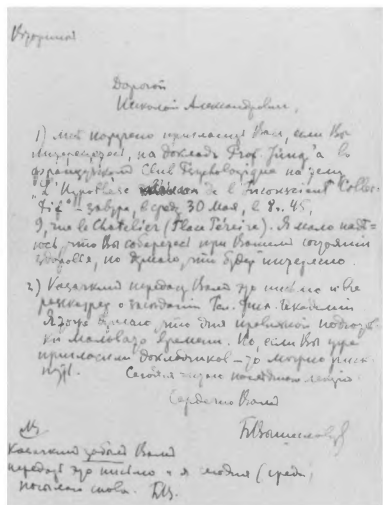 Вторник
Дорогой
Николай Александрович,
1) Мне поручено пригласить Вас, если Вы
интересуетесь, на доклад Prof. Jung'а в
французском Club Psychologique на тему
„L'Hypothèse de l'Inconscient Collec-
tif" – завтра, в среду 30 Мая, в 8 ч. 45,
9, rue le Chatelier (Place Péreire). Я мало наде-
юсь, что Вы соберетесь при Вашем состоянии
здоровья, но думаю, что будет интересно.
2) Казачкин передаст Вам это письмо и Вы
о заседании
Я тоже думаю, что для приличной подготов-
ки маловато времени. Но, если Вы уже
пригласили докладчиков – то можно риск-
нуть.
Сегодня читаю последнюю лекцию.
Сердечно Ваш
БВышеславцев
Казачкин забыл Вам
передать это письмо и я (среда)
посылаю снова. БВ.